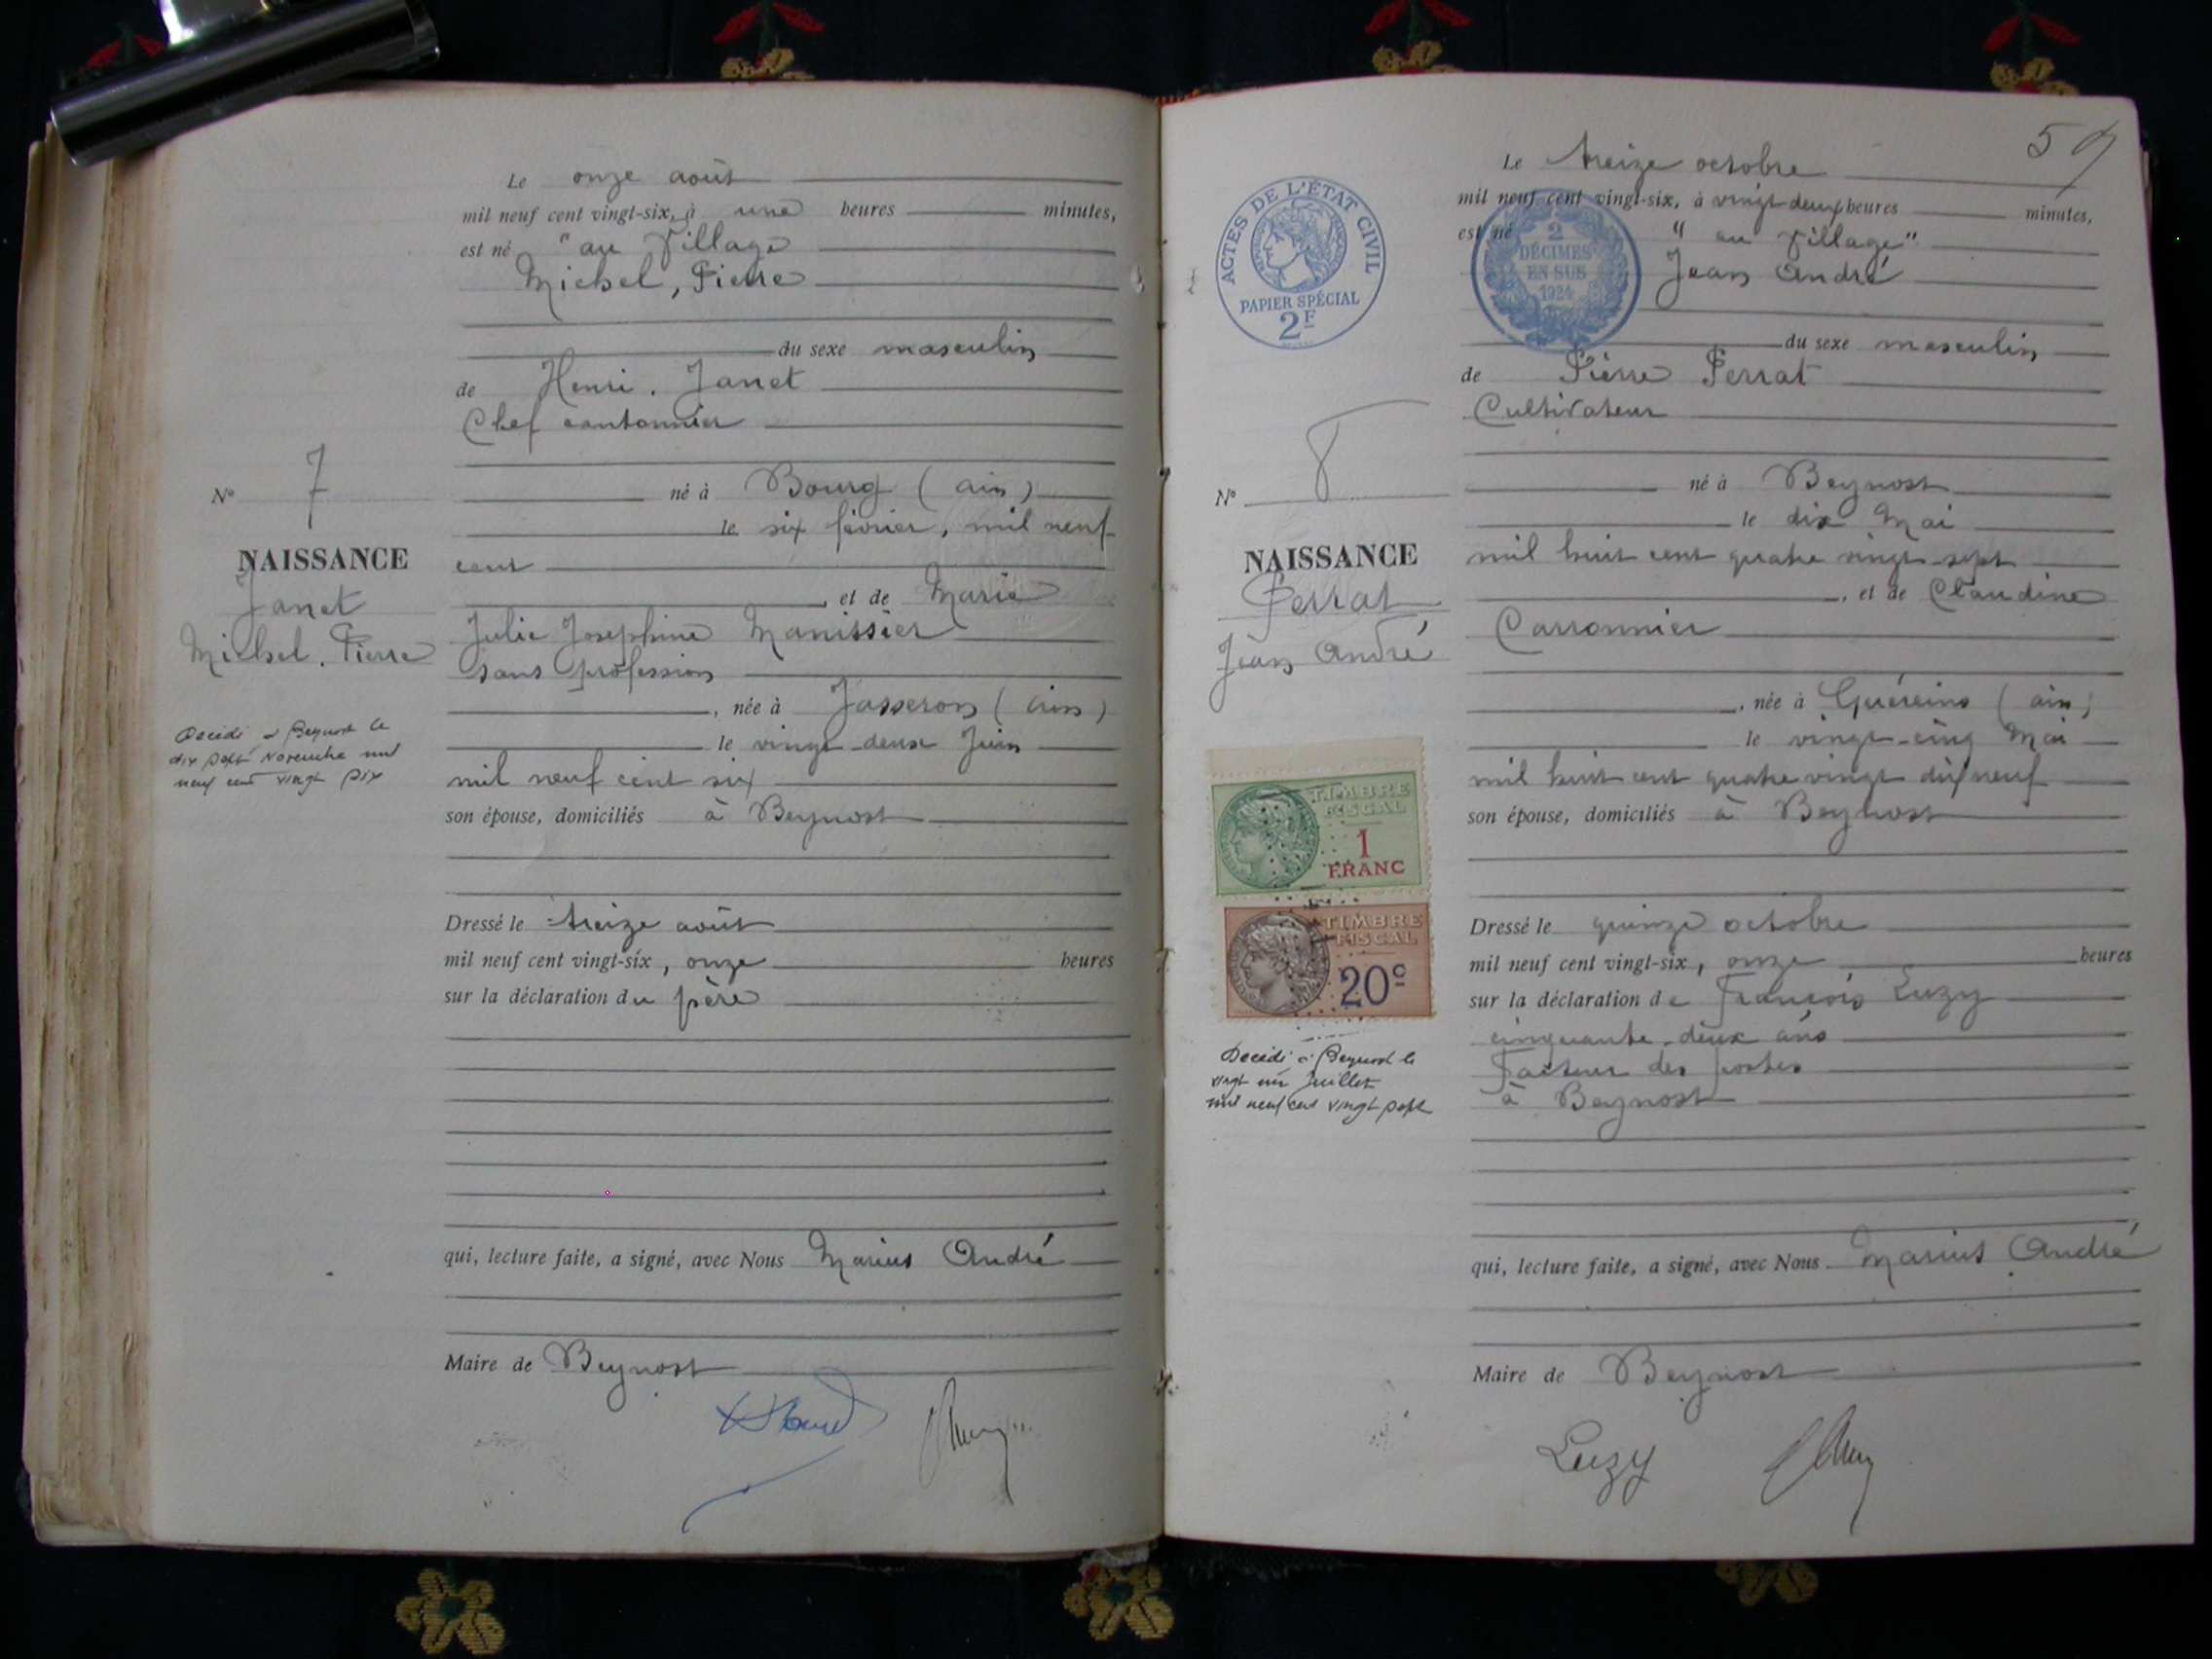 Le onze août
mil neuf cent vingt-six, à une heures minutes,
est né "au Village
Michel, Pierre
du sexe masculin
de Henri. Janet
Chef cantonnier
né à Bourg (ain)
le six février, mil neuf
cent
et de Marie
Julie Josephine Manissier
sans profession
, née à Jasseron (ain)
le vingt-deux Juin
mil neuf cent six
son épouse, domiciliés à Beynost
Dressé le treize août
mil neuf cent vingt-six, onze heures
sur la déclaration du père
qui, lecture faite, a signé, avec Nous Marius André
Maire de Beynost
N° 7
NAISSANCE
Janet
Michel. Pierre
Décédé à Beynost le
dix sept Novembre mil
neuf cent vingt six
59
Le treize octobre
mil neuf cent vingt-six, à vingt deux heures minutes,
est né "au Village"
Jean André
du sexe masculin
de Pierre Perrat
Cultivateur
né à Beynost
le dix Mai
mil huit cent quatre vingt-sept
, et de Claudine
Carronnier
, née à Guéreins (ain)
le vingt-cinq Mai
mil huit cent quatre vingt dix neuf
son épouse, domiciliés à Beynost
Dressé le quinze octobre
mil neuf cent vingt-six, onze heures
sur la déclaration de François Luzy
cinquante-deux ans
Facteur des postes
à Beynost
qui, lecture faite, a signé, avec Nous Marius André
Maire de Beynost
Luzy
ACTES DE L'ÉTAT CIVIL
PAPIER SPÉCIAL
2F
2
DÉCIMES
EN SUS
1924
N° 8
NAISSANCE
Perrat
Jean André
TIMBRE
FISCAL
1
FRANC
TIMBRE
FISCAL
20c
Décédé à Beynost le
vingt un Juillet
mil neuf cent vingt sept